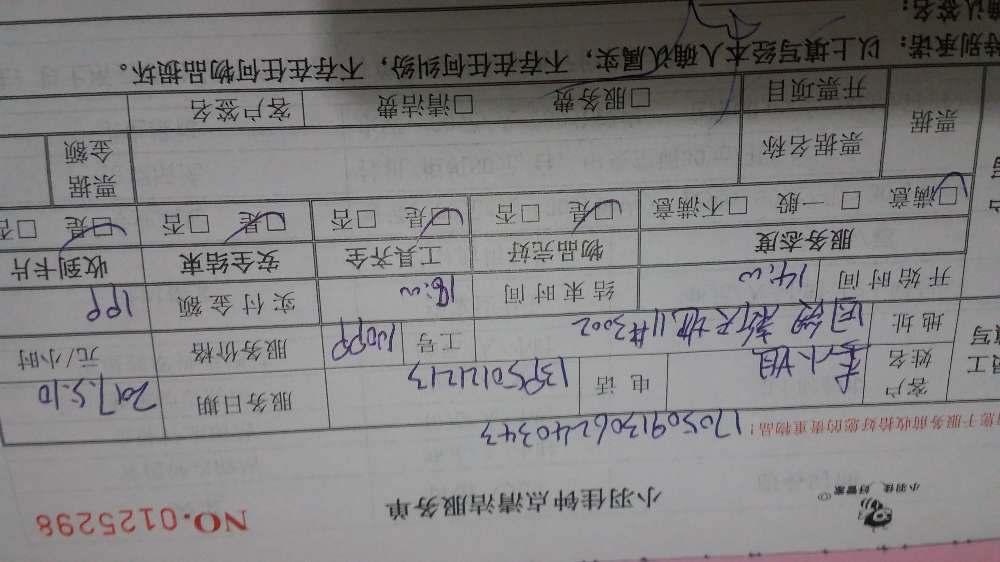 小羽佳 好管家
小羽佳钟点清洁服务单
NO.0125298
您于服务前收拾好您的贵重物品！ 170509130624034３
客户姓名 李小姐 电话 13950121213 服务日期 2017.5.10
地址 新天地11#3002 工号 10099 服务价格 元/小时
开始时间 14:00 结束时间 18:00 实付金额 199
服务态度 物品完好 工具齐全 安全结束 收到卡片
☑满意 □一般 □不满意 ☑是 □否 ☑是 □否 ☑是 □否 ☑是 □否
票据 票据名称 票据金额
开票项目 □服务费 □清洁费 客户签名
特别承诺：以上填写经本人确认属实，不存在任何纠纷，不存在任何物品损坏。
确认签名：